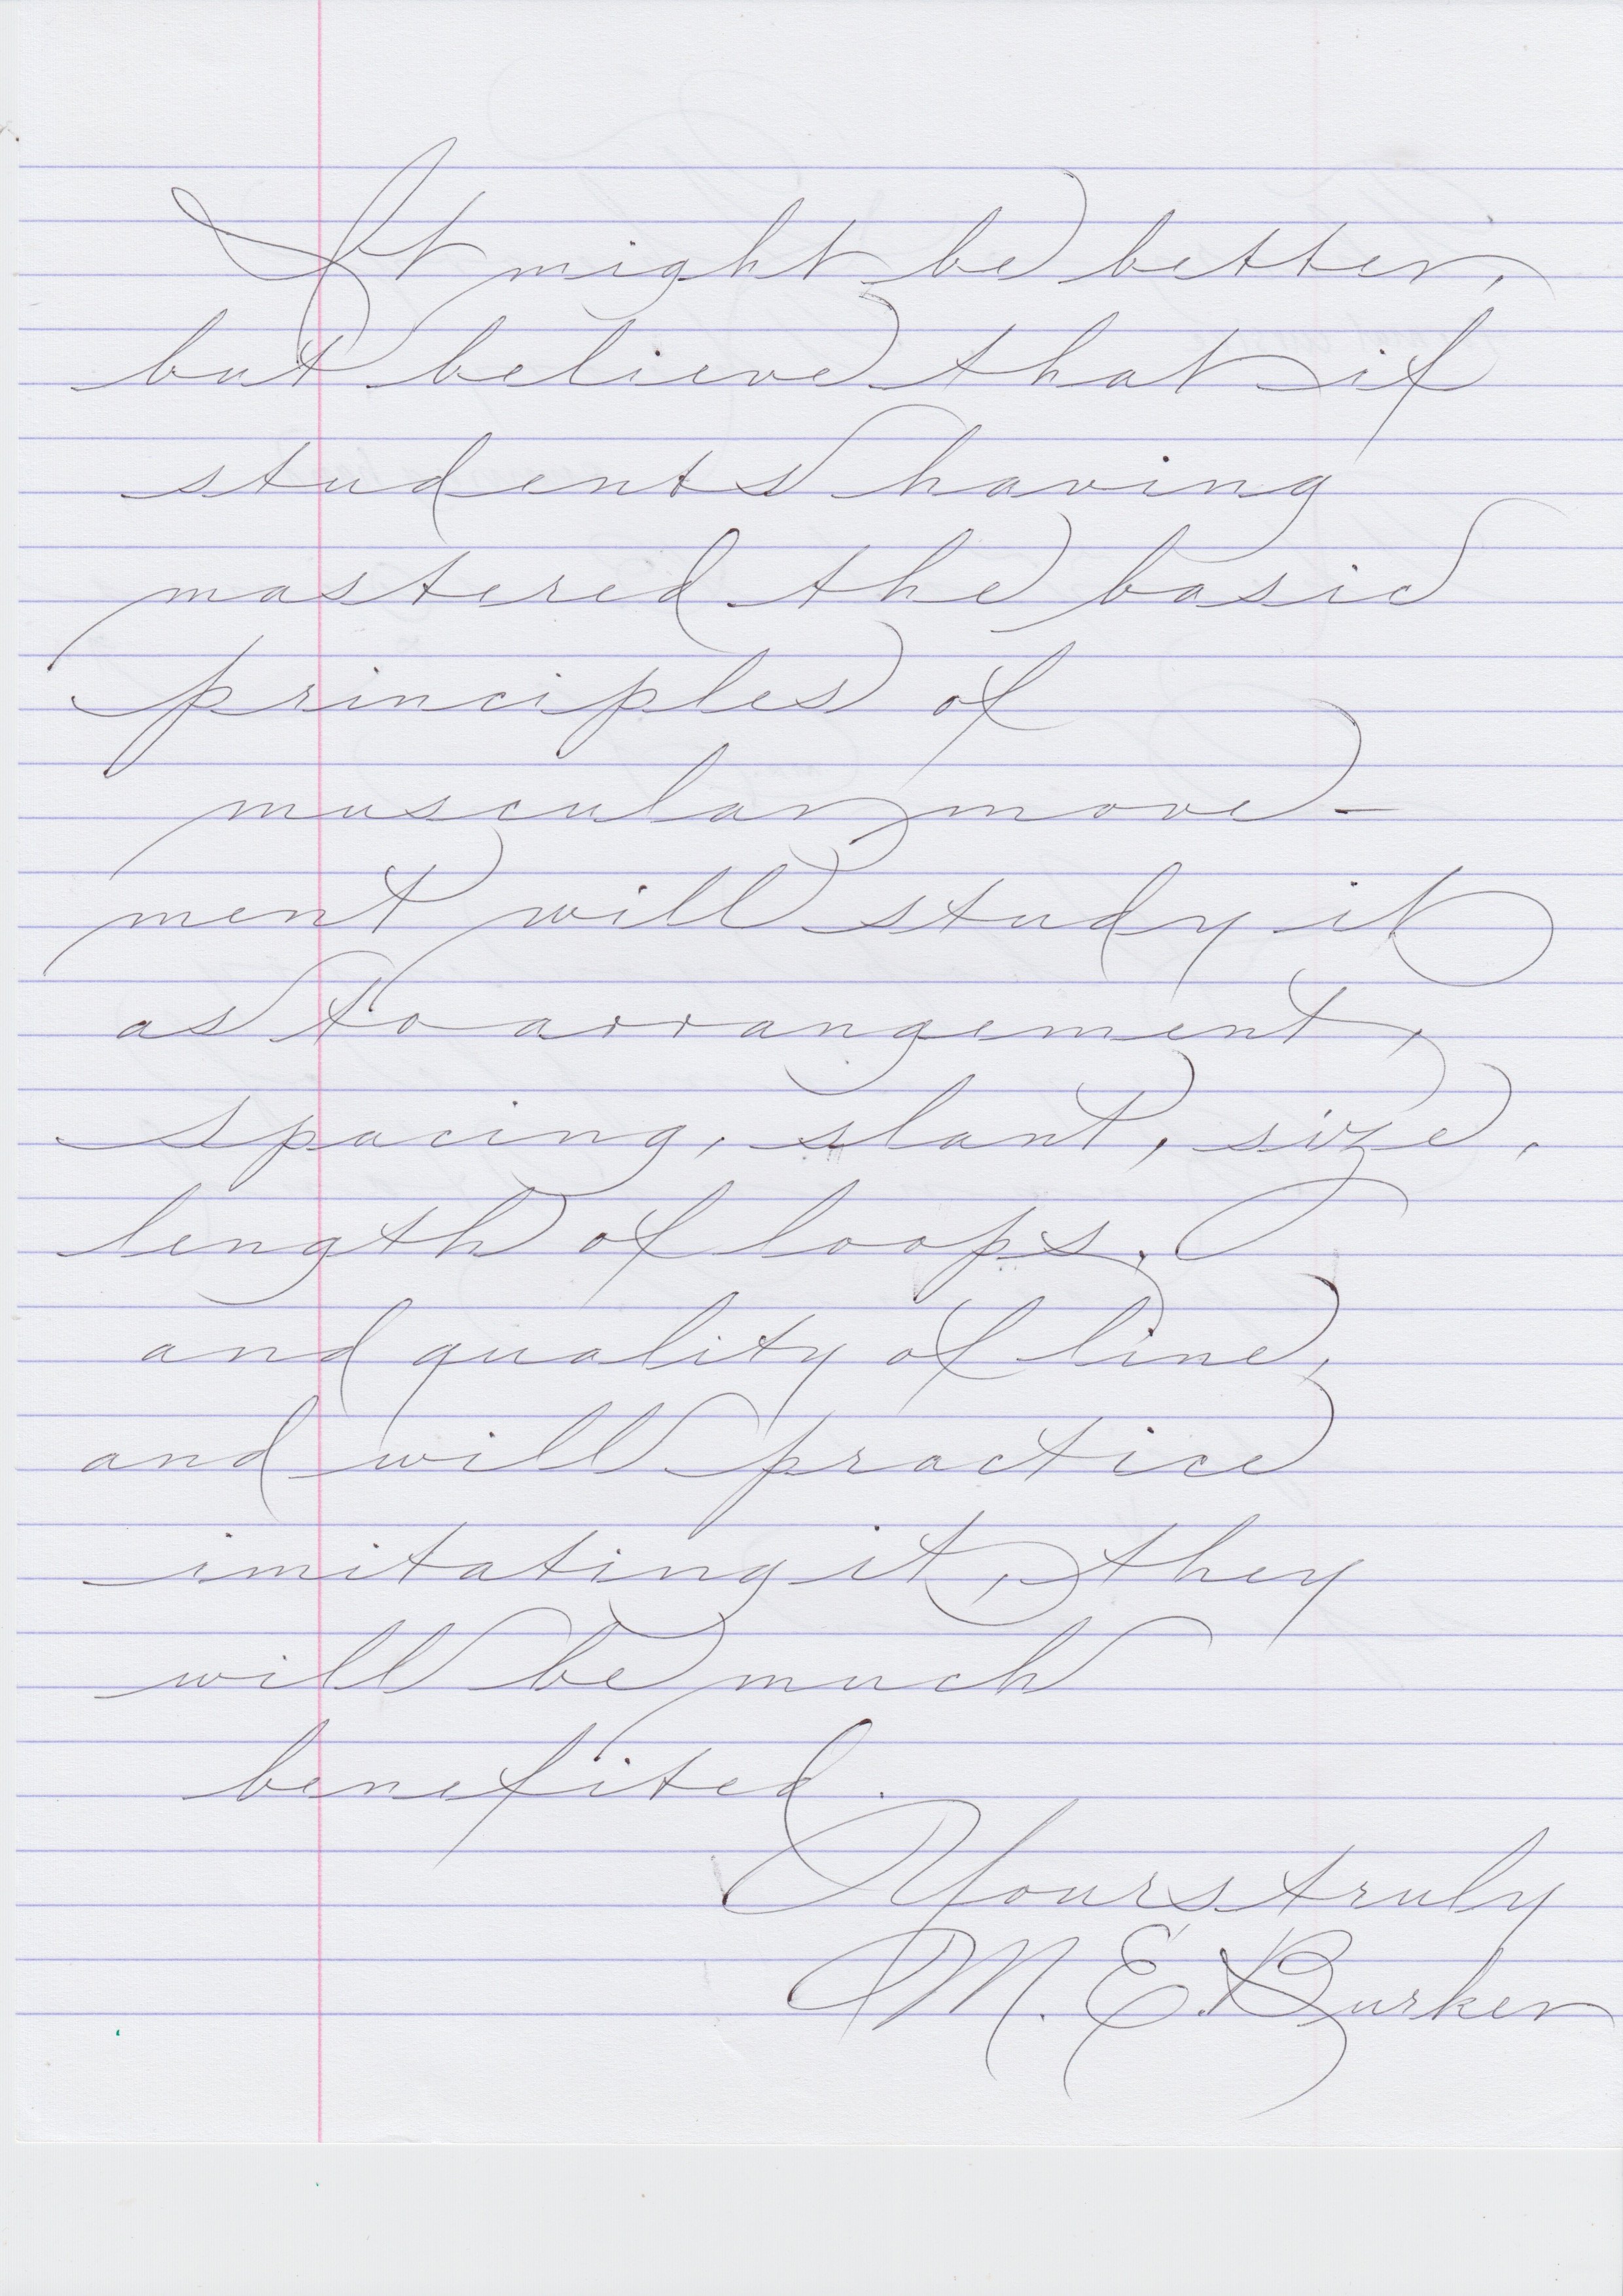 It might be better,
but believe that if
students having
mastered the basic
principles of
muscular move-
ment will study it
as to arrangement,
spacing, slant, size,
length of loops,
and quality of line,
and will practice
imitating it, they
will be much
benefited.
Yours truly
M. E. Burker